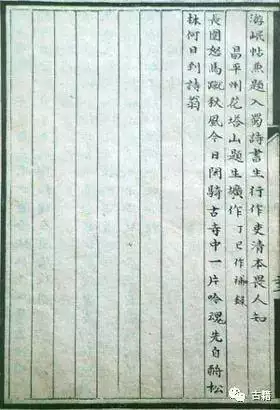 游岷帖魚題入蜀詩書生行作吏清本畏人知
昌平州花塔山題生壙作丁巳作補錄
長圍怒馬蹴秋風今日閑騎古寺中一片吟魂先自醉松
林何日到詩翁
古籍